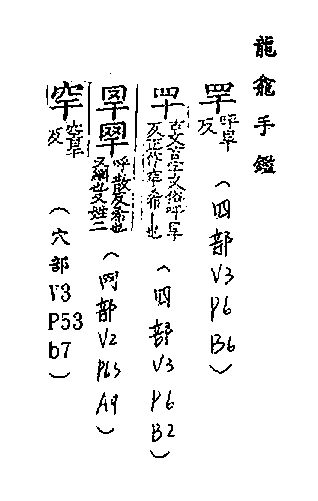 龍龕手鑑
罕 呼旱反
（四部 V3 P6 B6）
古文音字又俗呼旱反正作罕希也
（四部 V3 P6 B2）
呼散反希也又網也又姓二
（网部 V2 P63 A9）
穻 空旱反
（穴部 V3 P53 b7）